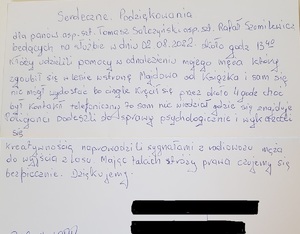 Serdeczne Podziękowania
dla panów asp.szt. Tomasz Salczyński, asp.szt. Rafał Szmilewicz
będących na służbie w dniu 02.08.2022 około godz 13 40
Którzy udzielili pomocy w odnalezieniu mojego męża który
zgubił się w lesie w stronę od Książka i sam się
nie mógł wydostać bo ciągle kręcił się przez około 4 godz choć
był kontakt telefoniczny to sam nie wiedział gdzie się znajduje
Policjanci podeszli do sprawy psychologicznie i wykazali
się
kreatywnością naprowadzili sygnałami z radiowozu męża
do wyjścia z lasu. Mając takich stróży prawa czujemy się
bezpiecznie. Dziękujemy.